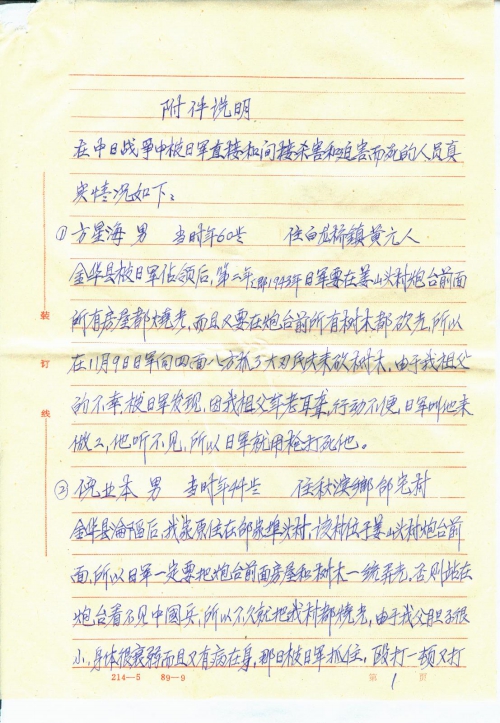 附件说明
在中日战争中被日军直接和间接杀害和迫害而死的人员真
实情况如下：
① 方星海 男 当时年60岁 住白龙桥鎮黄元人
金华县被日军佔领后，第二年即1943年日军要在姜山头村炮台前面
所有房屋都燒光，而且又要在炮台前所有树木都砍光，所以
在11月9日日军向四面八方抓了大刃民夫来砍树木，由于我祖父
的不幸，被日军发现，因我祖父年老耳聋，行动不便，日军叫他来
做工，他听不见，所以日军就用枪打死他。
② 倪业本 男 当时年44岁 住秋滨鄉
金华县淪陷后，我家原住在邱家埠头村，该村位于姜山头村炮台前
面，所以日军一定要把炮台前面房屋和树木一统弄光，否则站在
炮台看不见中國兵，所以不久就把我村都燒光，由于我父胆子很
小，身体很衰弱而且又有病在身，那日被日军抓住，殴打一頓又打
装
订
线
214—5 89—9
第 1 頁